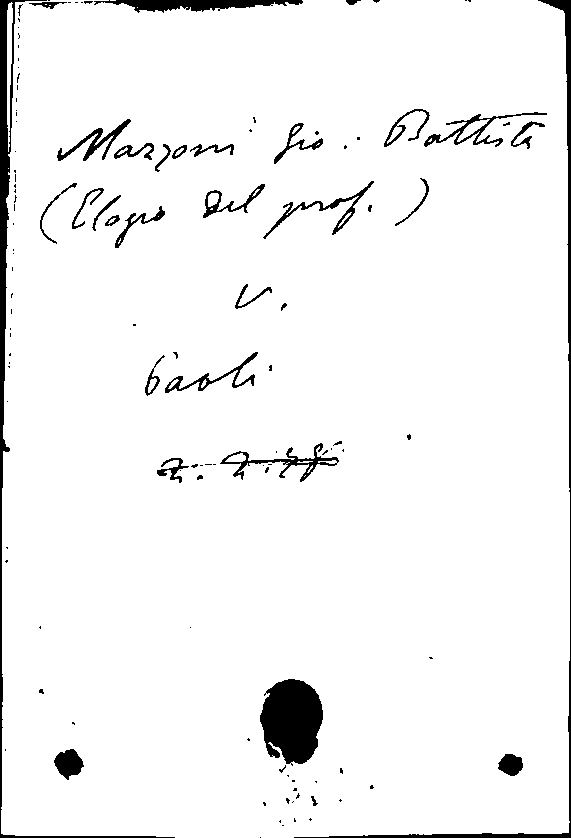 Mazzoni Gio. Battista
(Elogio del prof.)
V.
Paoli